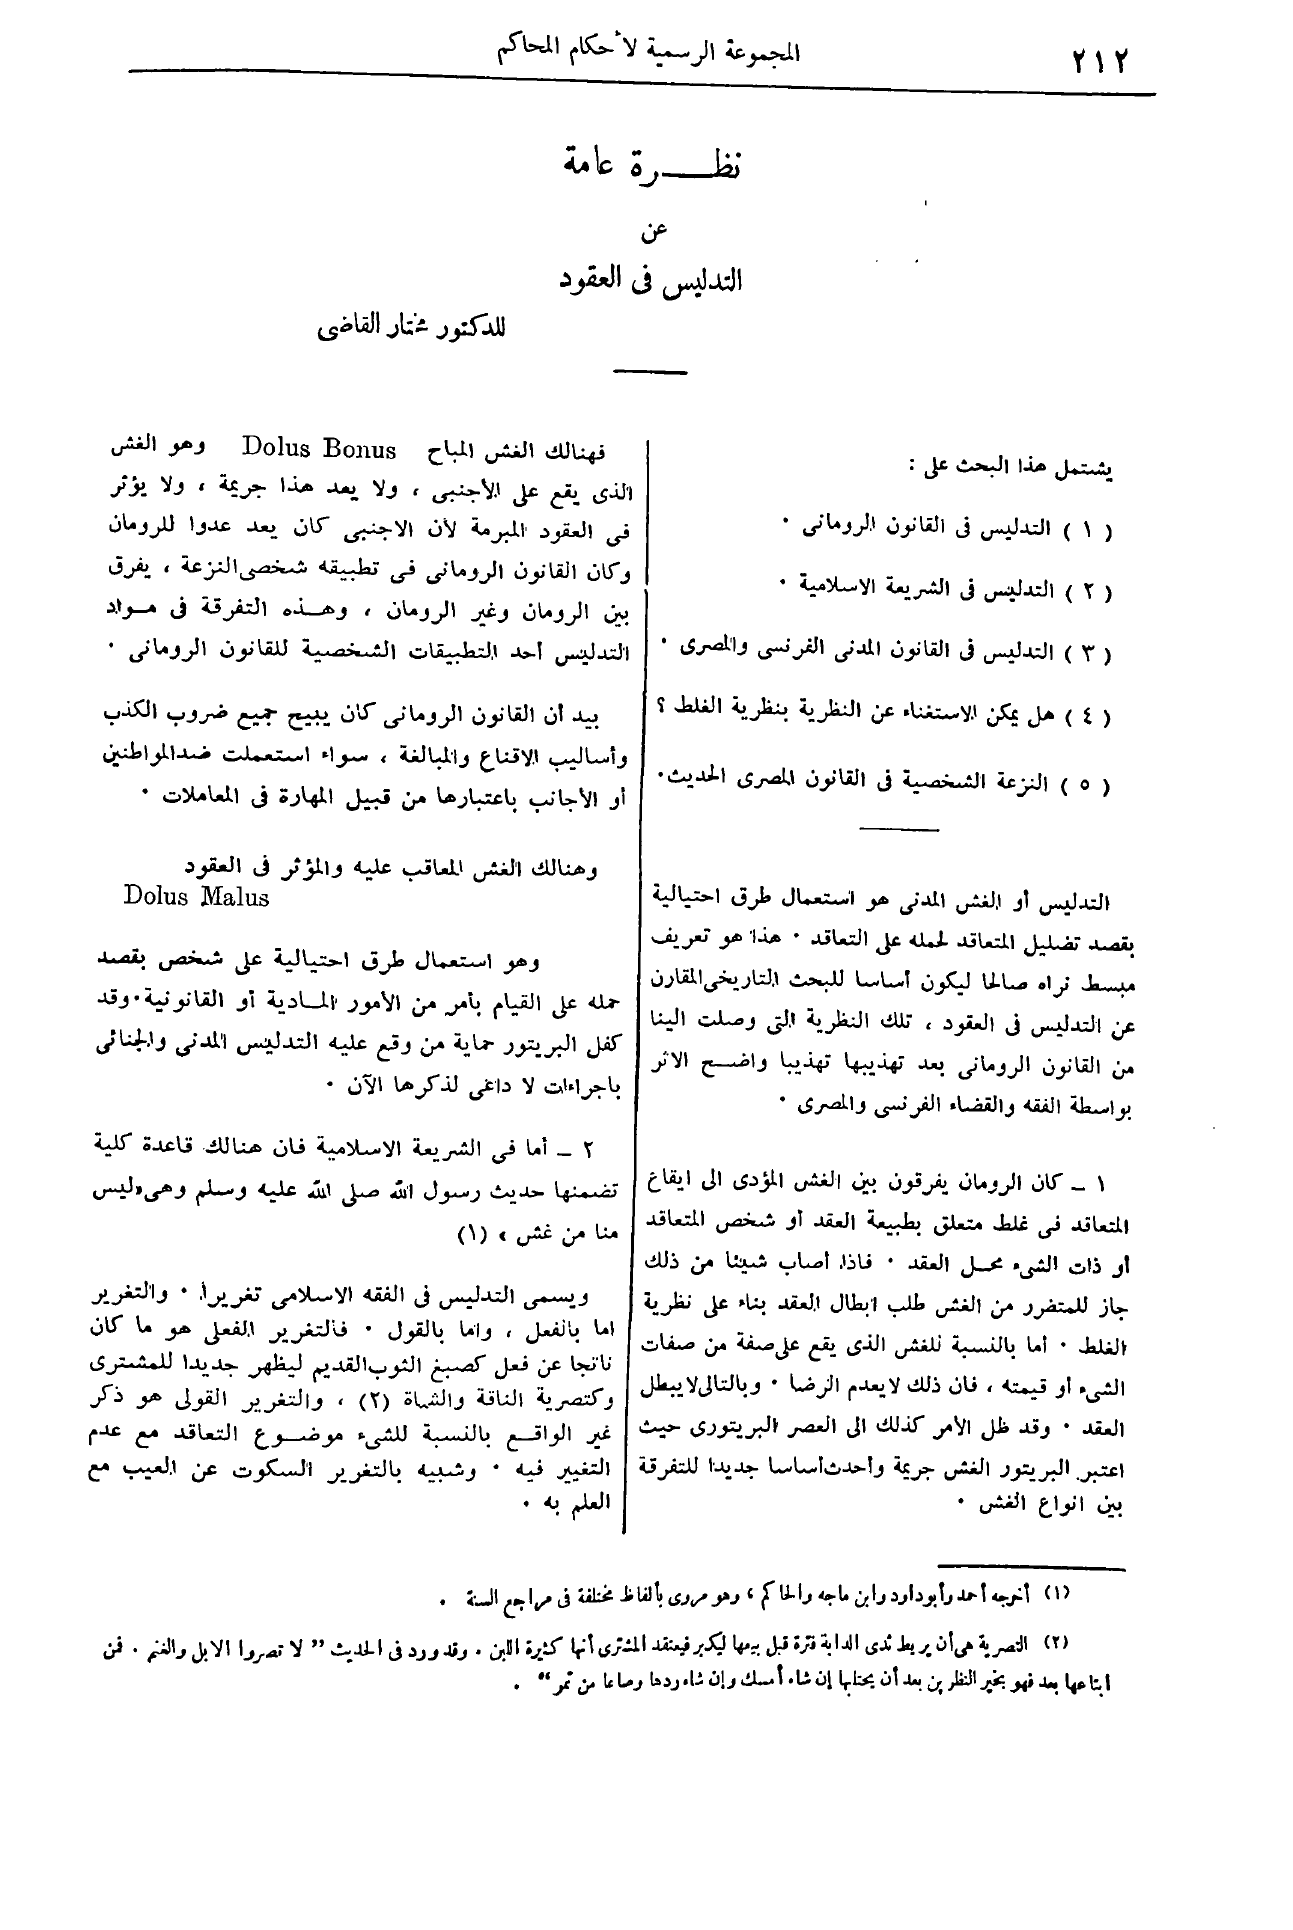 ٢١٢
المجموعة الرسمية لأحكام المحاكم
نظـــرة عامة
عن
التدليس فى العقود
للدكتور مختار القاضى
يشتمل هذا البحث على :
( ١ ) التدليس فى القانون الرومانى ٠
( ٢ ) التدليس فى الشريعة الاسلامية ٠
( ٣ ) التدليس فى القانون المدنى الفرنسى والمصرى ٠
( ٤ ) هل يمكن الاستغناء عن النظرية بنظرية الغلط ؟
( ٥ ) النزعة الشخصية فى القانون المصرى الحديث٠
التدليس أو الغش المدنى هو استعمال طرق احتيالية
بقصد تضليل المتعاقد لحمله على التعاقد ٠ هذا هو تعريف
مبسط نراه صالحا ليكون أساسا للبحث التاريخى المقارن
عن التدليس فى العقود ، تلك النظرية التى وصلت الينا
من القانون الرومانى بعد تهذيبها تهذيبا واضــح الاثر
بواسطة الفقه والقضاء الفرنسى والمصرى ٠
١ ـ كان الرومان يفرقون بين الغش المؤدى الى ايقاع
المتعاقد فى غلط متعلق بطبيعة العقد أو شخص المتعاقد
أو ذات الشىء محـل العقد ٠ فاذا أصاب شيئا من ذلك
جاز للمتضرر من الغش طلب ابطال العقد بناء على نظرية
الغلط ٠ أما بالنسبة للغش الذى يقع على صفة من صفات
الشىء أو قيمته ، فان ذلك لا يعدم الرضا ٠ وبالتالى لا يبطل
العقد ٠ وقد ظل الأمر كذلك الى العصر البريتورى حيث
اعتبر البريتور الغش جريمة وأحدث أساسا جديدا للتفرقة
بين انواع الغش ٠
فهنالك الغش المباح Dolus Bonus وهو الغش
الذى يقع على الأجنبى ، ولا يعد هذا جريمة ، ولا يؤثر
فى العقود المبرمة لأن الاجنبى كان يعد عدوا للرومان
وكان القانون الرومانى فى تطبيقه شخصى النزعة ، يفرق
بين الرومان وغير الرومان ، وهـذه التفرقة فى مـواد
التدليس أحد التطبيقات الشخصية للقانون الرومانى ٠
بيد أن القانون الرومانى كان يبيح جميع ضروب الكذب
وأساليب الاقناع والمبالغة ، سواء استعملت ضد المواطنين
أو الأجانب باعتبارها من قبيل المهارة فى المعاملات ٠
وهنالك الغش المعاقب عليه والمؤثر فى العقود
Dolus Malus
وهو استعمال طرق احتيالية على شخص بقصد
حمله على القيام بأمر من الأمور المـادية أو القانونية٠ وقد
كفل البريتور حماية من وقع عليه التدليس المدنى والجنائى
باجراءات لا داعى لذكرها الآن ٠
٢ ـ أما فى الشريعة الاسلامية فان هنالك قاعدة كلية
تضمنها حديث رسول الله صلى الله عليه وسلم وهى «ليس
منا من غش » (١)
ويسمى التدليس فى الفقه الاسلامى تغريرا ٠ والتغرير
اما بالفعل ، واما بالقول ٠ فالتغرير الفعلى هو ما كان
ناتجا عن فعل كصبغ الثوب القديم ليظهر جديدا للمشترى
وكتصرية الناقة والشاة (٢) ، والتغرير القولى هو ذكر
غير الواقـع بالنسبة للشىء موضـوع التعاقد مع عدم
التغيير فيه ٠ وشبيه بالتغرير السكوت عن العيب مع
العلم به ٠
(١) أخرجه أحمد وأبو داود وابن ماجه والحاكم ، وهو مروى بألفاظ مختلفة فى مراجع السنة .
(٢) التصرية هى أن يربط ثدى الدابة فترة قبل بيعها ليكبر فيعتقد المشترى أنها كثيرة اللبن . وقد ورد فى الحديث " لا تصروا الابل والغنم . فمن
ابتاعها بعد فهو بخير النظرين بعد أن يحتلبها إن شاء أمسك وإن شاء ردها وصاعا من تمر " .